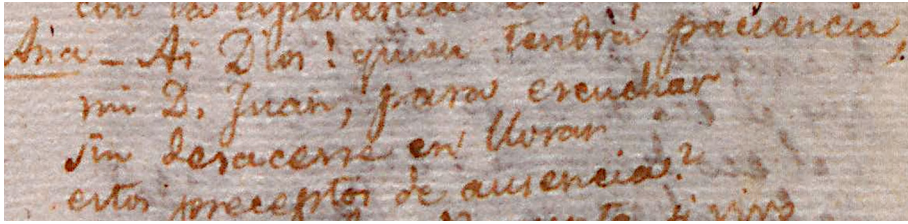 con la esperanza
Ana - Ai Dios! quien tendrá paciencia,
mi D. Juan, para escuchar
sin desacerse en llorar
estos preceptos de ausencia?